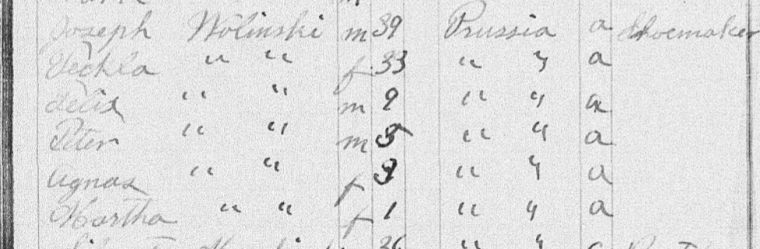 Jozeph Wolinski m 39 Prussia a Shoemaker
Veckla " " f 33 " " a
Felix " " m 9 " " a
Peter " " m 5 " " a
Agnas " " f 3 " " a
Martha " " f 1 " " a